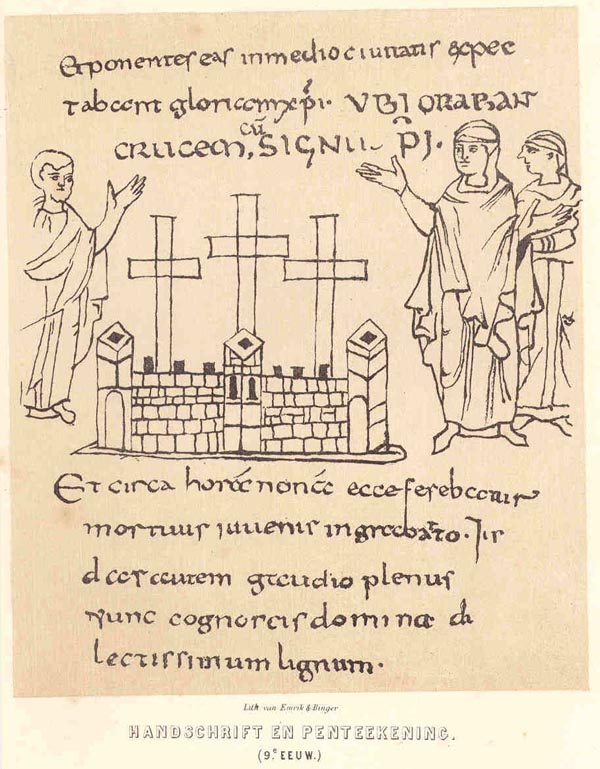 Et ponentes eas inmedio ciuitatis expec
tabant gloriam xp̄i. VBI ORABANT
cū
crucem, SIGNU P̄I.
Et circa horam nonam ecce ferebatur
mortuus iuuenis ingrabato. Iu
das autem gaudio plenus
Nunc cognoscis domina di
lectissimum lignum.
Lith. van Emrik & Binger
HANDSCHRIFT EN PENTEEKENING.
(9.e EEUW.)